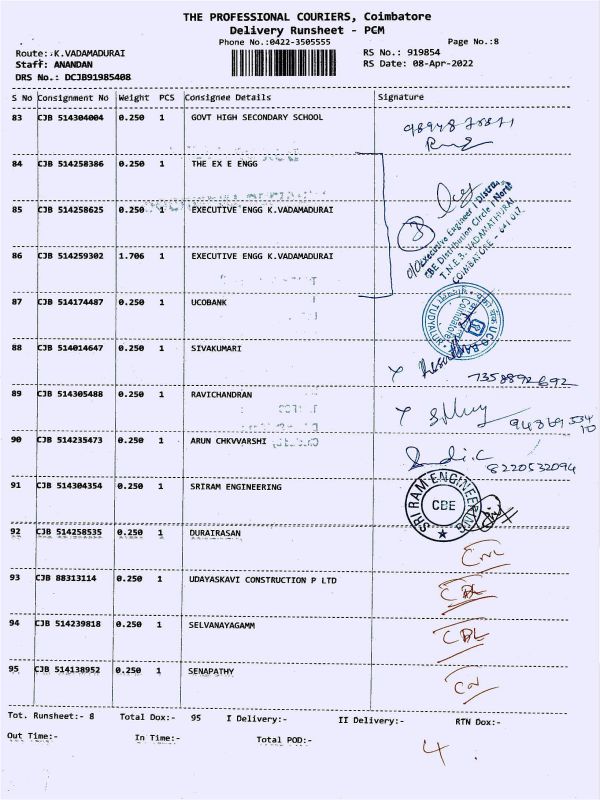 THE PROFESSIONAL COURIERS, Coimbatore
Delivery Runsheet - PCM
Phone No.:0422-3505555 Page No.:8
Route: K.VADAMADURAI RS No.: 919854
Staff: ANANDAN RS Date: 08-Apr-2022
DRS No.: DCJB91985408
S No Consignment No Weight PCS Consignee Details Signature
83 CJB 514304004 0.250 1 GOVT HIGH SECONDARY SCHOOL
84 CJB 514258386 0.250 1 THE EX E ENGG
85 CJB 514258625 0.250 1 EXECUTIVE ENGG K.VADAMADURAI
3
O/O Executive Engineer / Distbn
CBE Distribution Circle / North
T.N.E.B. VADAMATHURAI
COIMBATORE - 641 017.
86 CJB 514259302 1.706 1 EXECUTIVE ENGG K.VADAMADURAI
87 CJB 514174487 0.250 1 UCOBANK
UCO BANK
Coimbatore
TUDIYALUR
88 CJB 514014647 0.250 1 SIVAKUMARI
7358892692
89 CJB 514305488 0.250 1 RAVICHANDRAN
90 CJB 514235473 0.250 1 ARUN CHKVVARSHI
8220532094
91 CJB 514304354 0.250 1 SRIRAM ENGINEERING
SRI RAM ENGINEERING
CBE
92 CJB 514258535 0.250 1 DURAIRASAN
93 CJB 88313114 0.250 1 UDAYASKAVI CONSTRUCTION P LTD
CDL
94 CJB 514239818 0.250 1 SELVANAYAGAMM
CDL
95 CJB 514138952 0.250 1 SENAPATHY
Tot. Runsheet:- 8 Total Dox:- 95 I Delivery:- II Delivery:- RTN Dox:-
Out Time:- In Time:- Total POD:-
4